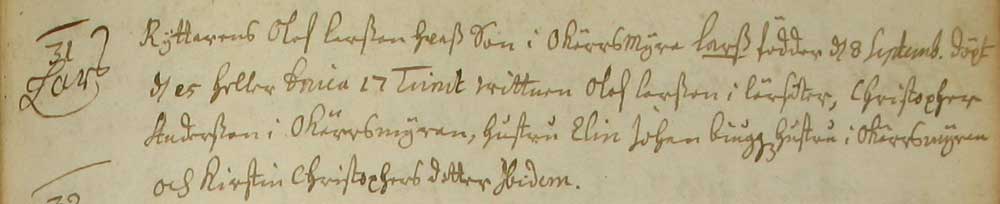 31
Lars
Ryttarens Olof Larsson Hååfs Son i Okerrsmyra Lars födder d 8 Septemb. döpt
d 25 heller Dnica 17 Trinit vittnen Olof Larsson i Lärsäter, Christopher
Andersson i Okerrsmyran, hustru Elin Johan biugz hustru i Okerrsmyran
och Kirstin Christophers dotter Ibidem.
32